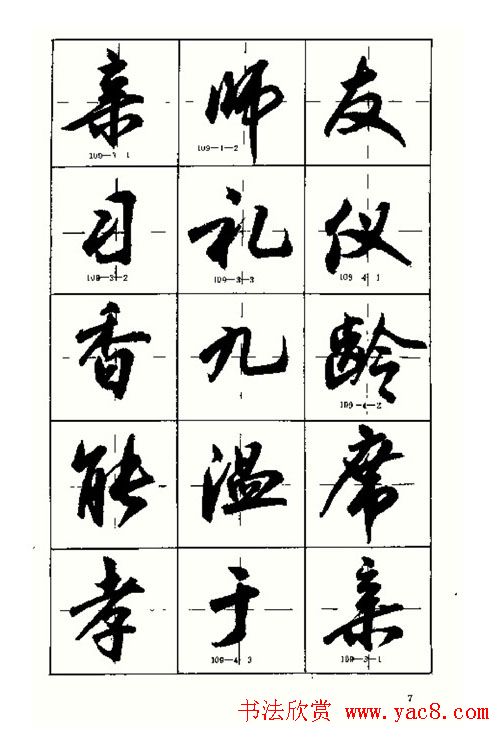 亲师友
109-3-1 109-1-2
习礼仪
109-3-2 109-3-3 109 4 1
香九龄
109-4-2
能温席
孝于亲
109-4 3 109-3-1
7
书法欣赏 www.yac8.com